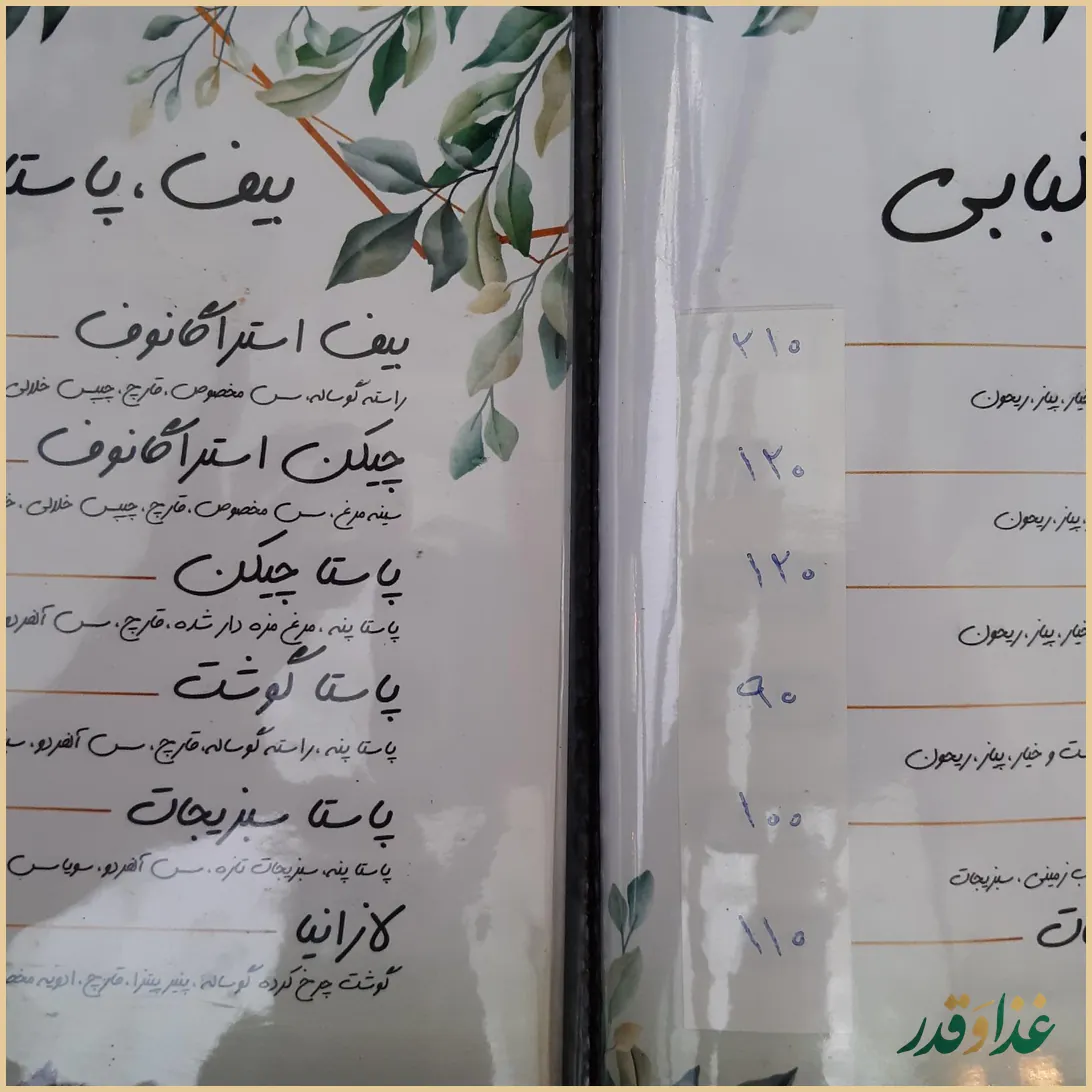 بابی
۲۱۰
خیار، پیاز، ریحون
۱۲۰
پیاز، ریحون
۱۲۰
خیار، پیاز، ریحون
۹۰
و خیار، پیاز، ریحون
۱۰۰
زمینی، سبزیجات
۱۱۰
بیف، پاستا
بیف استراگانوف
راسته گوساله، سس مخصوص، قارچ، چیپس خلالی
چیکن استراگانوف
سینه مرغ، سس مخصوص، قارچ، چیپس خلالی
پاستا چیکن
پاستا پنه، مرغ مزه دار شده، قارچ، سس آلفردو
پاستا گوشت
پاستا پنه، راسته گوساله، قارچ، سس آلفردو
پاستا سبزیجات
پاستا پنه، سبزیجات تازه، سس آلفردو، سویا سس
لازانیا
گوشت چرخ کرده گوساله، پنیر پیتزا، قارچ، ادویه
غذا و قدر